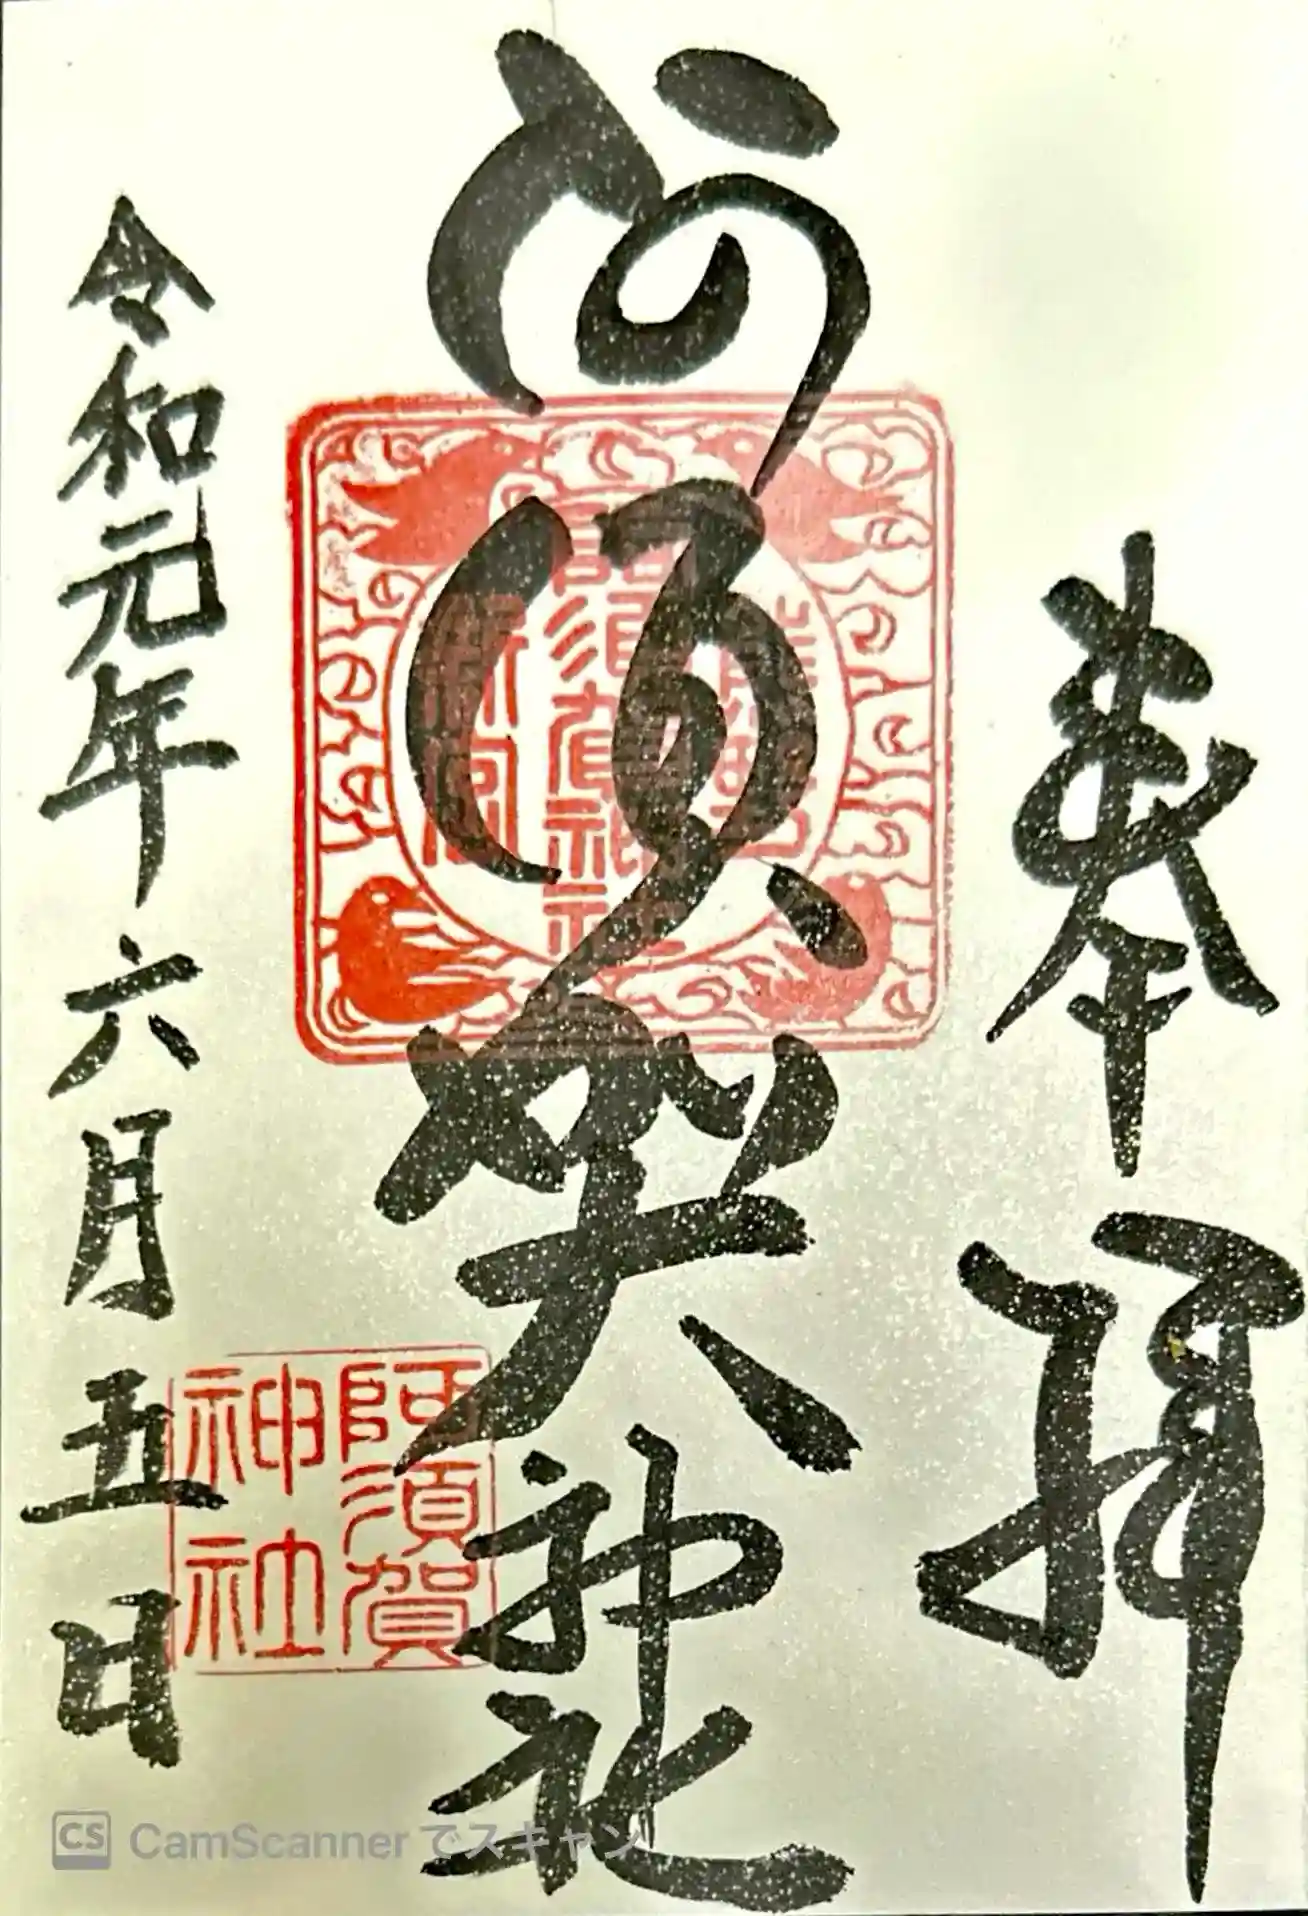 奉拝
阿須賀神社
令和元年六月五日
阿須賀
神社
CS CamScanner でスキャン